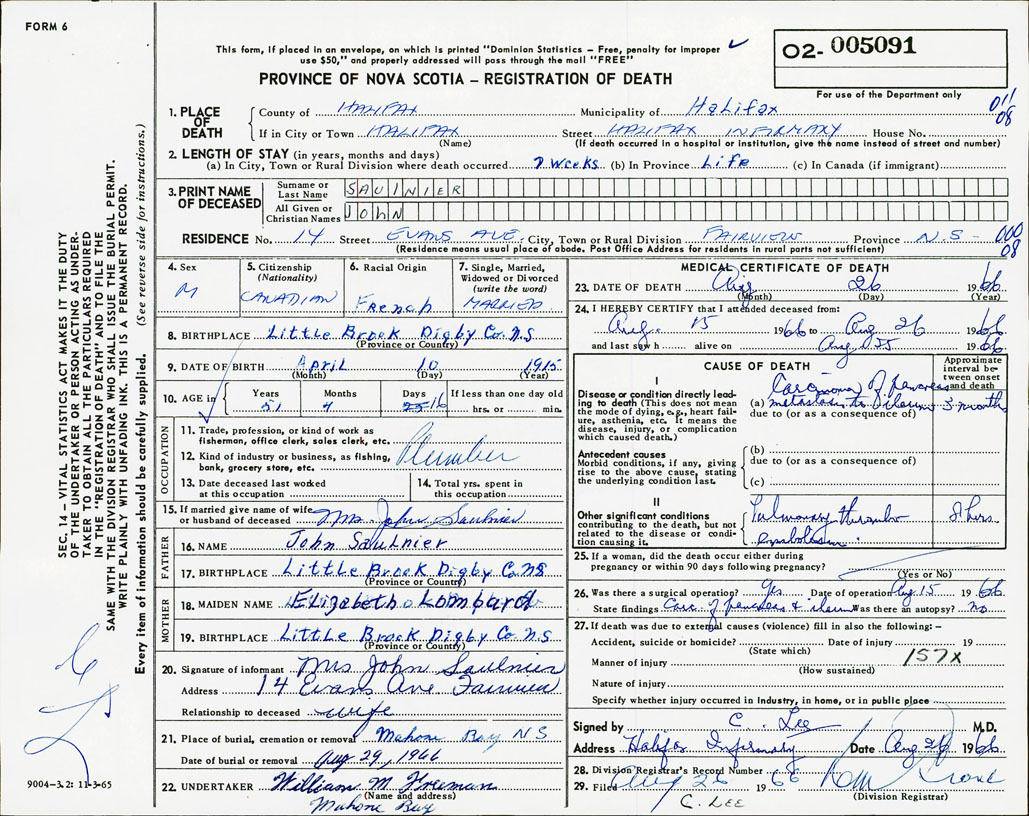 FORM 6
This form, if placed in an envelope, on which is printed "Dominion Statistics – Free, penalty for improper
use $50," and properly addressed will pass through the mail "FREE"
PROVINCE OF NOVA SCOTIA – REGISTRATION OF DEATH
02- 005091
For use of the Department only
011
08
1. PLACE OF DEATH
County of HALIFAX Municipality of Halifax
If in City or Town HALIFAX Street HALIFAX INFIRMARY House No.
(Name) (If death occurred in a hospital or institution, give the name instead of street and number)
2. LENGTH OF STAY (in years, months and days)
(a) In City, Town or Rural Division where death occurred 7 Weeks (b) In Province Life (c) In Canada (if immigrant)
3. PRINT NAME OF DECEASED
Surname or Last Name SAULNIER
All Given or Christian Names JOHN
RESIDENCE No. 14 Street EVANS AVE. City, Town or Rural Division FAIRVIEW Province N.S-
(Residence means usual place of abode. Post Office Address for residents in rural parts not sufficient)
000
08
4. Sex
M
5. Citizenship
(Nationality)
CANADIAN
6. Racial Origin
French
7. Single, Married,
Widowed or Divorced
(write the word)
MARRIED
8. BIRTHPLACE Little Brook Digby Co N.S
(Province or Country)
9. DATE OF BIRTH April 10 1915
(Month) (Day) (Year)
10. AGE in
Years 51
Months 4
Days 16
If less than one day old
hrs. or min.
OCCUPATION
11. Trade, profession or kind of work as
fisherman, office clerk, sales clerk, etc.
12. Kind of industry or business, as fishing,
bank, grocery store, etc.
Plumber
13. Date deceased last worked
at this occupation
14. Total yrs. spent in
this occupation
15. If married give name of wife
or husband of deceased Mrs. John Saulnier
FATHER
16. NAME John Saulnier
17. BIRTHPLACE Little Brook Digby Co NS
(Province or Country)
MOTHER
18. MAIDEN NAME Elizabeth Lombard
19. BIRTHPLACE Little Brook Digby Co N.S
(Province or Country)
20. Signature of informant Mrs John Saulnier
Address 14 Evans Ave Fairview
Relationship to deceased wife
21. Place of burial, cremation or removal Mahone Bay N S
Date of burial or removal Aug 29, 1966
22. UNDERTAKER William M.
(Name and address)
Mahone Bay
MEDICAL CERTIFICATE OF DEATH
23. DATE OF DEATH Aug 26 1966
(Month) (Day) (Year)
24. I HEREBY CERTIFY that I attended deceased from:
Aug. 15 1966 to Aug 26 1966
and last saw h alive on Aug 25 1966
CAUSE OF DEATH
Approximate interval between onset and death
I
Disease or condition directly leading to death (This does not mean
the mode of dying, e.g., heart failure, asthenia, etc. It means the
disease, injury, or complication
which caused death.)
(a) Carcinoma of pancreas
metastasis to ileum 3 months
due to (or as a consequence of)
Antecedent causes
Morbid conditions, if any, giving
rise to the above cause, stating
the underlying condition last.
(b)
due to (or as a consequence of)
(c)
II
Other significant conditions
contributing to the death, but not
related to the disease or condition
causing it.
Pulmonary thrombo hrs
embolism.
25. If a woman, did the death occur either during
pregnancy or within 90 days following pregnancy?
(Yes or No)
26. Was there a surgical operation? Yes Date of operation Aug 15 1966
State findings Carc. of pancreas & ileum Was there an autopsy? no
27. If death was due to external causes (violence) fill in also the following:–
Accident, suicide or homicide? Date of injury 19
(State which)
157X
Manner of injury
(How sustained)
Nature of injury
Specify whether injury occurred in industry, in home, or in public place
Signed by C. Lee M.D.
Address Halifax Infirmary Date Aug 26 1966
28. Division Registrar's Record Number
29. Filed Aug 26 1966
(Division Registrar)
C. LEE
SEC. 14 – VITAL STATISTICS ACT MAKES IT THE DUTY
OF THE UNDERTAKER OR PERSON ACTING AS UNDER-
TAKER TO OBTAIN ALL THE PARTICULARS REQUIRED
IN THE "REGISTRATION OF DEATH" AND TO FILE THE
SAME WITH THE DIVISION REGISTRAR WHO SHALL ISSUE THE BURIAL PERMIT.
WRITE PLAINLY WITH UNFADING INK. THIS IS A PERMANENT RECORD.
Every item of information should be carefully supplied. (See reverse side for instructions.)
9004-3.2: 11-3-65